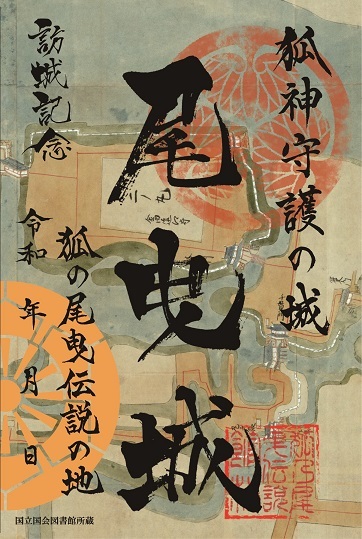 狐神守護の城
尾曳城
訪城記念
狐の尾曳伝説の地
令和 年 月 日
二ノ丸
国立国会図書館所蔵